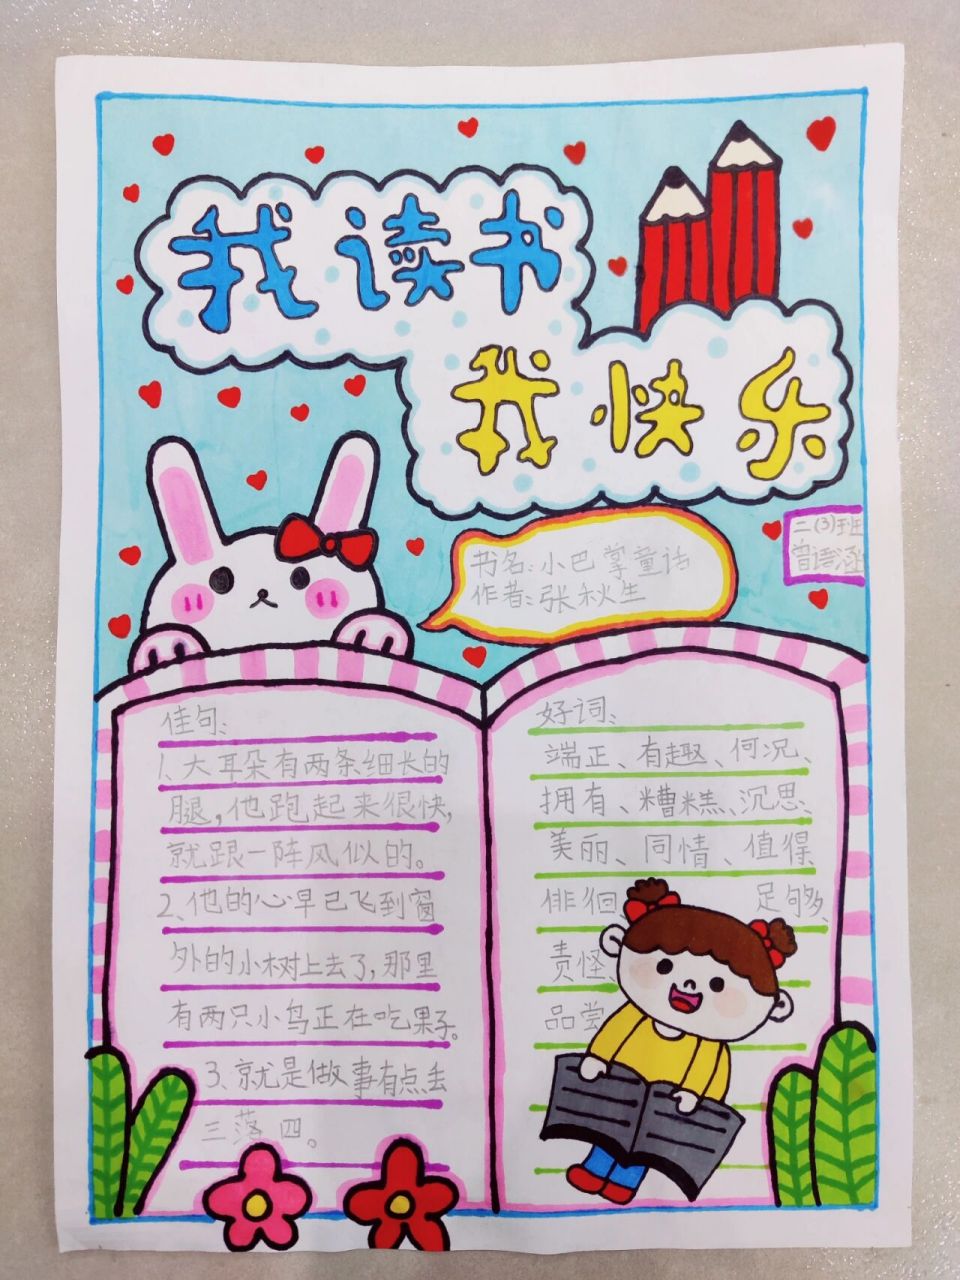 我读书
我快乐
二(3)班
曾语涵
书名:小巴掌童话
作者:张秋生
佳句:
1、大耳朵有两条细长的
腿,他跑起来很快,
就跟一阵风似的。
2、他的心早已飞到窗
外的小树上去了,那里
有两只小鸟正在吃果子。
3、就是做事有点丢
三落四。
好词:
端正、有趣、何况、
拥有、糟糕、沉思、
美丽、同情、值得
徘徊、 足够、
责怪、
品尝